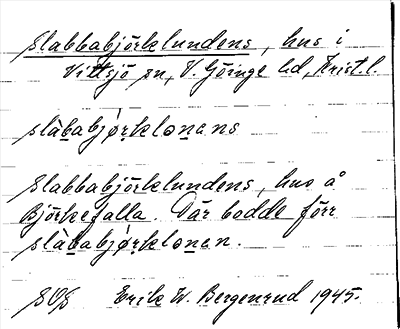 Slabbabjörklundens, hus i
Vittsjö sn, V. Göinge hd, Krist. l.
slàbabjǿrklonens
Slabbabjörklundens, hus å
Björkefalla. Där bodde förr
slàbabjǿrklonen.
Erik W. Bergenrud 1945.